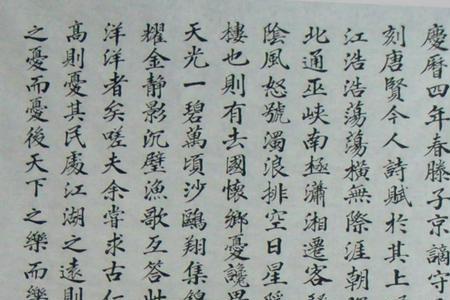 慶曆四年春滕子京謫守
刻唐賢今人詩賦於其上
江浩浩蕩蕩橫無際涯朝
北通巫峽南極瀟湘遷客騷
陰風怒號濁浪排空日星隱
樓也則有去國懷鄉憂讒畏
天光一碧萬頃沙鷗翔集錦
耀金靜影沉璧漁歌互答此
洋洋者矣嗟夫余嘗求古仁
高則憂其民處江湖之遠則
之憂而憂後天下之樂而樂